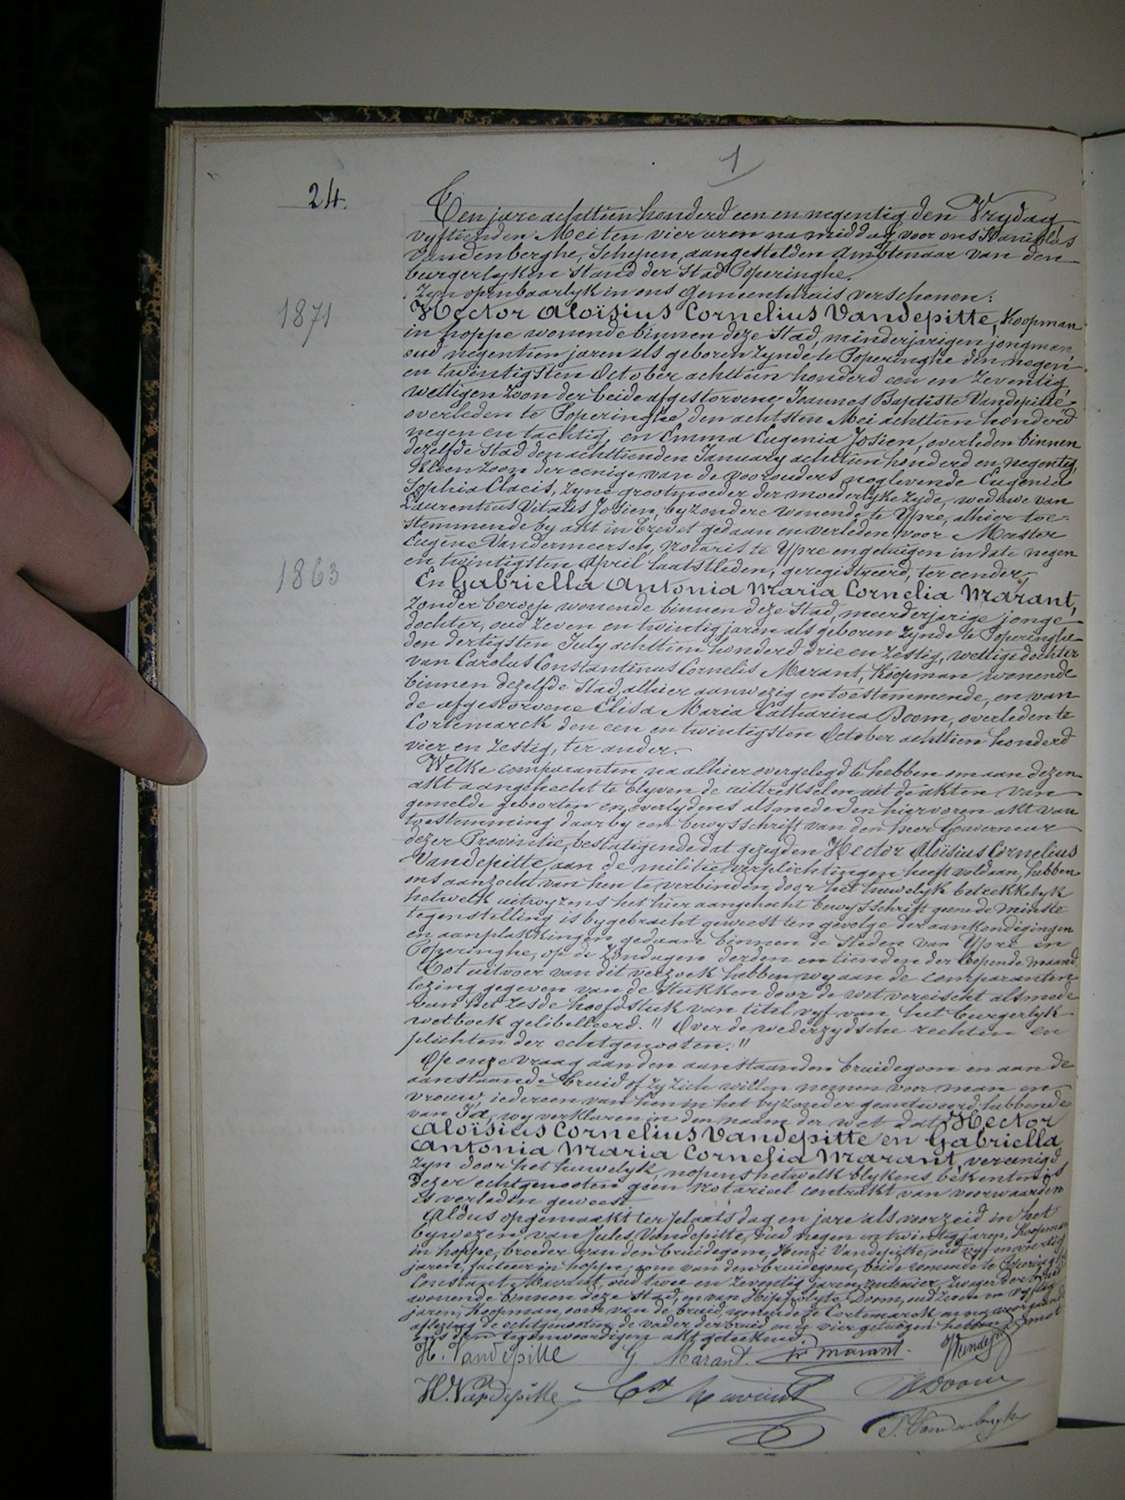 1
24.
Ten jare achttien honderd een en negentig den Vrydag
vyftienden Mei ten vier uren namiddag voor ons Stanislas
Vandenberghe, Schepen, aangestelden Ambtenaar van den
burgerlyken stand der Stad Poperinghe.
Zyn openbaarlyk in ons Gemeentehuis verschenen:
1871
Hector Aloïsius Cornelius Vandepitte, Koopman
in hoppe wonende binnen deze Stad, minderjarigen jongman
oud negentien jaren als geboren zynde te Poperinghe den negen
en twintigsten October achttien honderd een en zeventig,
wettigen zoon der beide afgestorvene Joannes Baptiste Vandepitte
overleden te Poperinghe den achtsten Mei achttien honderd
negen en tachtig en Emma Eugenia Josien, overleden binnen
dezelfde Stad den achttienden January achttien honderd en negentig,
kleenzoon der eenige van de voorouders nog levende Eugenia
Sophia Claeis, zyne grootmoeder der moederlyke zyde, weduwe van
Laurentius Vitalis Josien, byzondere wonende te Ypre, alhier toe-
stemmende by akt in brevet gedaan en verleden voor Meester
Eugène Vandermeersch, Notaris te Ypre en getuigen in date negen
en twintigsten April laatstleden, geregistreerd, ter eender,
1863
En Gabriella Antonia Maria Cornelia Marant,
Zonder beroep wonende binnen deze Stad, meerderjarige jonge
dochter, oud zeven en twintig jaren als geboren zynde te Poperinghe
den dertigsten July achttien honderd drie en zestig, wettige dochter
van Carolus Constantinus Cornelis Marant, Koopman wonende
binnen dezelfde Stad, alhier aanwezig en toestemmende, en van
de afgestorvene Elisa Maria Catharina Doom, overleden te
Cortemarck den een en twintigsten October achttien honderd
vier en zestig, ter ander.
Welke comparanten, na alhier overgelegd te hebben om aan dezen
akt aangehecht te blyven de uittrekselen uit de akten van
gemelde geboorten en overlydens alsmede den hiervoren akt van
toestemming daarby een bewysschrift van den heer Gouverneur
dezer Provintie, bestatigende dat gezegden Hector Aloïsius Cornelius
Vandepitte aan de militie verplichtingen heeft voldaan, hebben
ons aanzocht van hen te verbinden door het huwelyk betrekkelyk
hetwelk uitwyzens het hier aangehecht bewysschrift geene de minste
tegenstelling is bygebracht geweest ten gevolge der aankondigingen
en aanplakkingen gedaan binnen de steden van Ypre en
Poperinghe, op de Zondagen derden en tienden der loopende maand.
Tot uitvoer van dit verzoek hebben wy aan de comparanten
lezing gegeven van de stukken door de wet vereischt alsmede
van het zesde hoofdstuk van titel vyf van het burgerlyk
wetboek gelibelleerd. " Over de wederzydsche rechten en
plichten der echtgenooten. "
Op onze vraag aan den aanstaanden bruidegom en aan de
aanstaande bruid of zy zich willen nemen voor man en
vrouw, iedereen van hen in het byzonder geantwoord hebbende
van Ja, wy verklaren in den naam der wet dat Hector
Aloïsius Cornelius Vandepitte en Gabriella
Antonia Maria Cornelia Marant, vereenigd
zyn door het huwelyk, nopens hetwelk blykens bekentenis
dezer echtgenooten geen notarieel contrakt van voorwaarden
is verleden geweest.
Aldus opgemaakt ter plaats dag en jare als voorzeid in het
bywezen van Jules Vandepitte, oud negen en twintig jaren, Koopman
in hoppe, broeder van den bruidegom, Henri Vandepitte, oud en veertig
jaren, facteur in hoppe, oom van den bruidegom, beide wonende te Poperinghe
Constant Marant, oud twee en zeventig jaren, rentenier, der bruid
wonende binnen deze Stad, en van Hippolyte Doom, oud zeven en vyftig
jaren, Koopman, oom van de bruid, wonende te Cortemarck en na voorgaande
aflezing de echtgenooten, de vader der bruid en de vier getuigen hebben met
ons dezen tegenwoordigen akt geteekend
H. Vandepitte G Marant. Marant. Vandep
H. Vandepitte Ct Marant H Doom
S. Vandenberghe